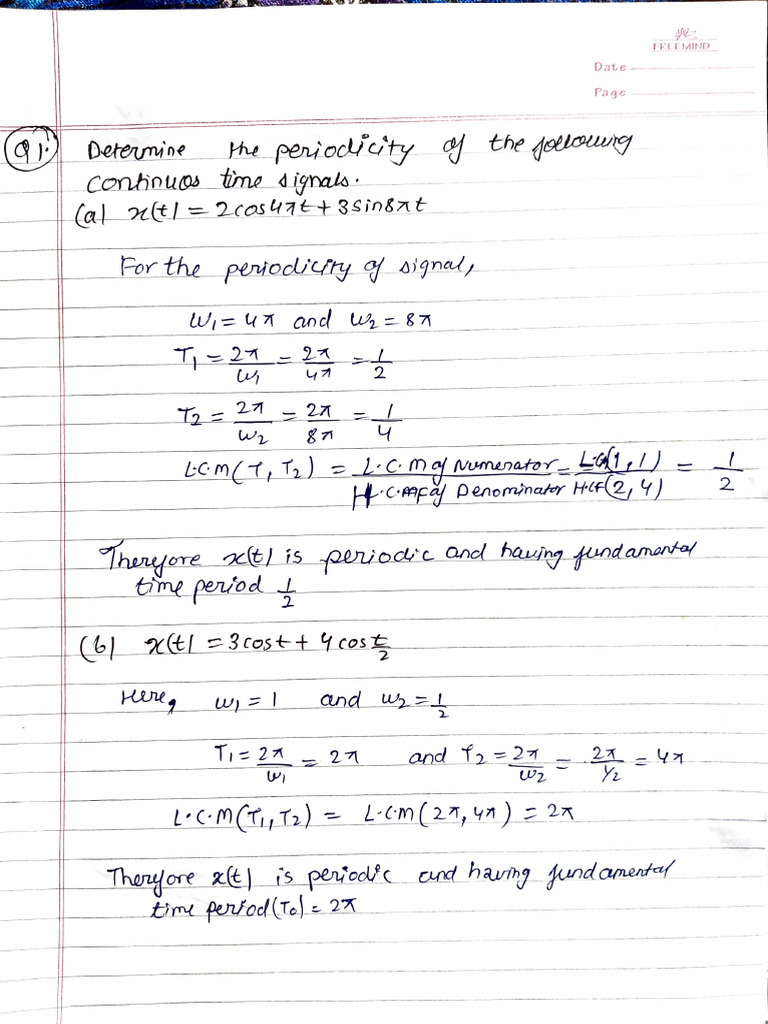 FREEMIND
Date
Page
Q1. Determine the periodicity of the following
continuos time signals.
(a) x(t) = 2cos4πt + 3sin8πt
For the periodicity of signal,
W1 = 4π and W2 = 8π
T1 = 2π/W1 = 2π/4π = 1/2
T2 = 2π/W2 = 2π/8π = 1/4
L.C.M(T, T2) = L.C.M of Numerator/H.C.F of Denominator = L.C(1,1)/H.CF(2,4) = 1/2
Therefore x(t) is periodic and having fundamental
time period 1/2
(b) x(t) = 3cost + 4cost/2
Here, W1 = 1 and W2 = 1/2
T1 = 2π/W1 = 2π and T2 = 2π/W2 = 2π/1/2 = 4π
L.C.M(T1, T2) = L.C.M(2π, 4π) = 2π
Therefore x(t) is periodic and having fundamental
time period (To) = 2π